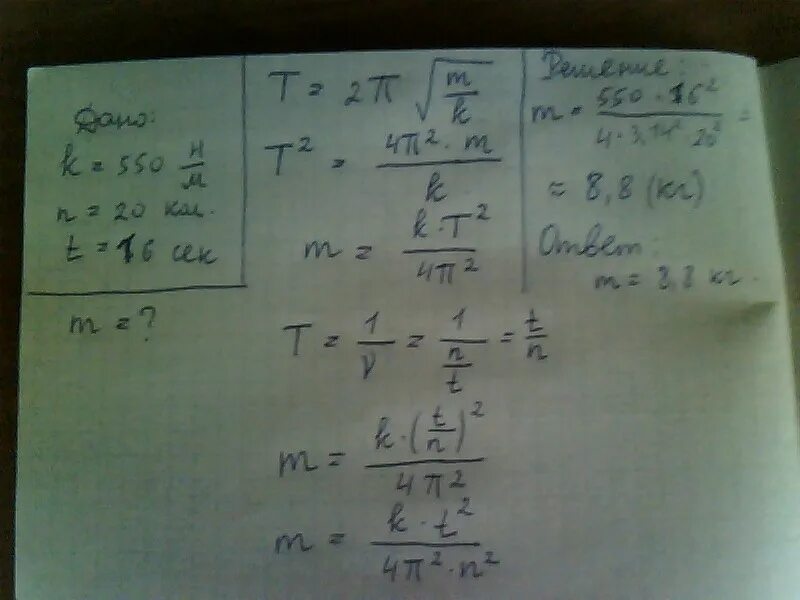 Дано:
k = 550 Н/м
n = 20 кол.
t = 16 сек
m = ?
T = 2π √(m/k)
T² = 4π²·m / k
m = k·T² / 4π²
T = 1/ν = 1/(n/t) = t/n
m = k·(t/n)² / 4π²
m = k·t² / 4π²·n²
Решение:
m = 550·16² / 4·3,14²·20² =
≈ 8,8 (кг)
Ответ:
m = 8,8 кг.